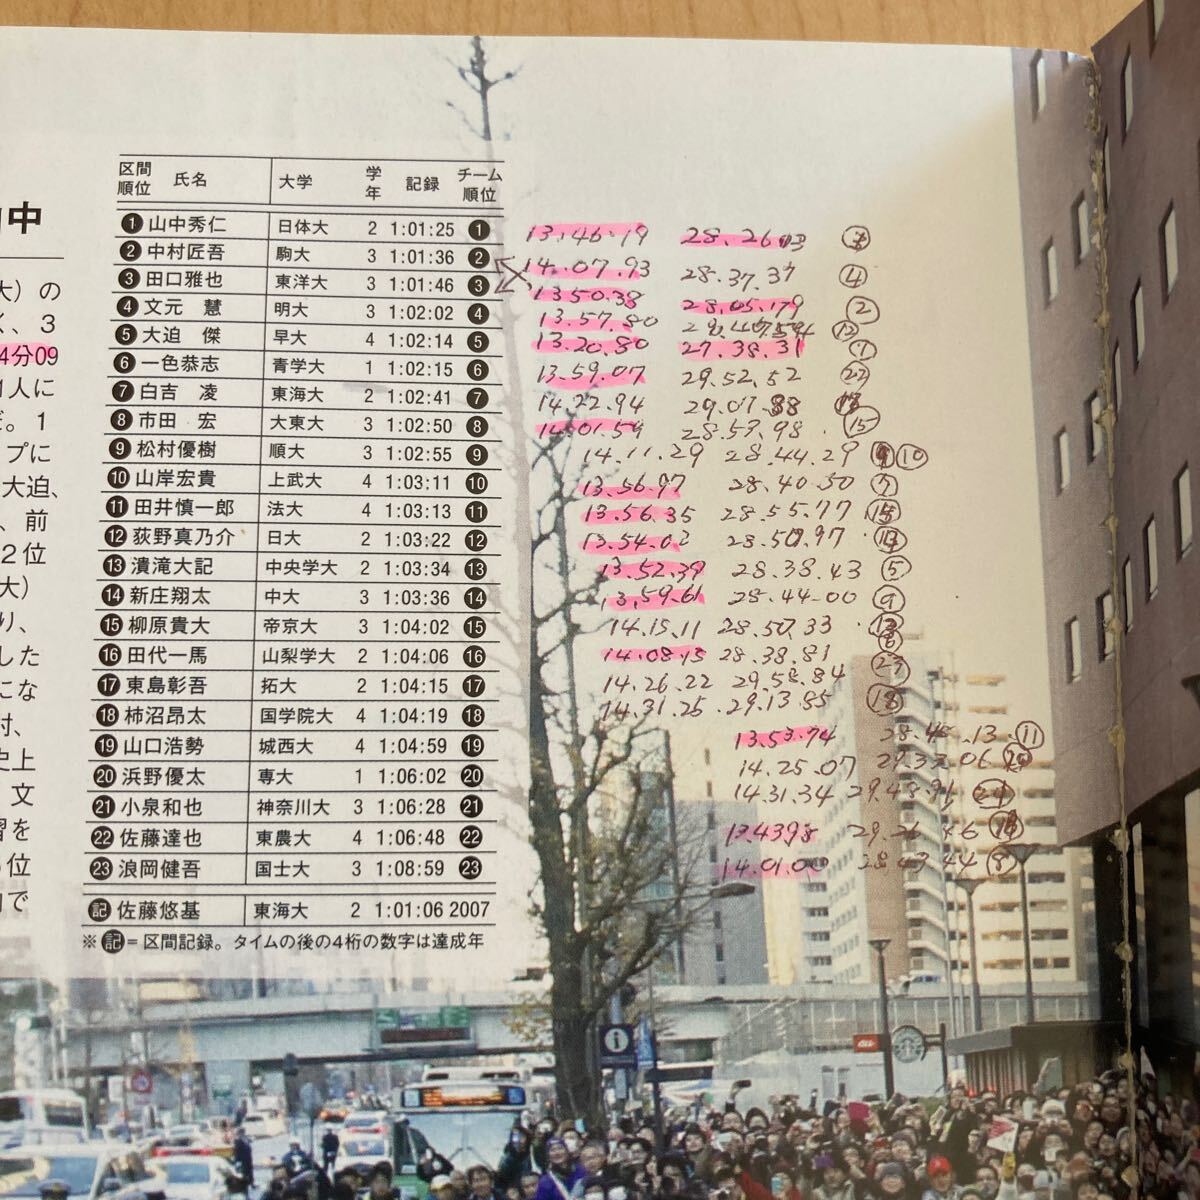 中
区間順位 氏名 大学 学年 記録 チーム順位
1 山中秀仁 日体大 2 1:01:25 1 13.46.19 28.26
2 中村匠吾 駒大 3 1:01:36 2 14.07.93 28.37.37 4
3 田口雅也 東洋大 3 1:01:46 3 13.50.38 28.05.179 2
4 文元 慧 明大 3 1:02:02 4 13.57.80
5 大迫 傑 早大 4 1:02:14 5 13.20.80 27.38.31 1
6 一色恭志 青学大 1 1:02:15 6 13.59.07 29.52.52 22
7 白吉 凌 東海大 2 1:02:41 7 14.22.94 29.07.88
8 市田 宏 大東大 3 1:02:50 8 14.01.59 28.53.98 15
9 松村優樹 順大 3 1:02:55 9 14.11.29 28.44.29 10
10 山岸宏貴 上武大 4 1:03:11 10 13.56.97 28.40.50 7
11 田井慎一郎 法大 4 1:03:13 11 13.56.35 28.55.77
12 荻野真乃介 日大 2 1:03:22 12 13.54.02 28.50.97
13 潰滝大記 中央学大 2 1:03:34 13 13.52.39 28.38.43 5
14 新庄翔太 中大 3 1:03:36 14 13.59.61 28.44.00 9
15 柳原貴大 帝京大 3 1:04:02 15 14.15.11 28.50.33
16 田代一馬 山梨学大 2 1:04:06 16 14.08.15 28.38.81 6
17 東島彰吾 拓大 2 1:04:15 17 14.26.22 29.58.84 23
18 柿沼昂太 国学院大 4 1:04:19 18 14.31.25 29.13.85 18
19 山口浩勢 城西大 4 1:04:59 19 13.53.74 28.45.13 11
20 浜野優太 専大 1 1:06:02 20 14.25.07
21 小泉和也 神奈川大 3 1:06:28 21 14.31.34 29.48.91 21
22 佐藤達也 東農大 4 1:06:48 22 13.43.98 29.26.46
23 浪岡健吾 国士大 3 1:08:59 23 14.01.00 28.43.44 8
記 佐藤悠基 東海大 2 1:01:06 2007
※記=区間記録。タイムの後の4桁の数字は達成年
大）の
く、3
4分09
1人に
だ。1
プに
大迫、
、前
2位
大）
り、
した
にな
村、
史上
文
習を
位
で
i